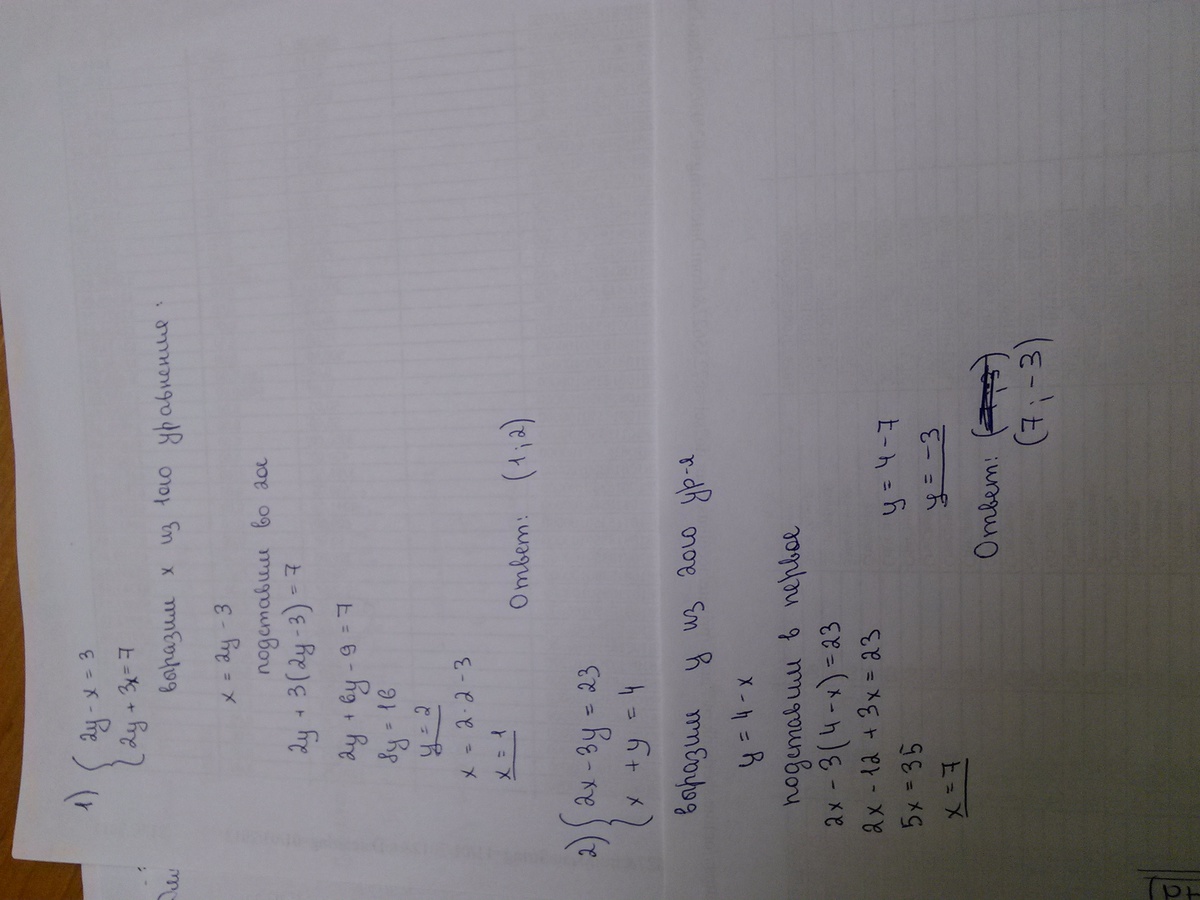 1) { 2y - x = 3
2y + 3x = 7
выразим x из 1ого уравнения:
x = 2y - 3
подставим во 2ое
2y + 3(2y - 3) = 7
2y + 6y - 9 = 7
8y = 16
y = 2
x = 2 · 2 - 3
x = 1
Ответ: (1; 2)
2) { 2x - 3y = 23
x + y = 4
выразим y из 2ого ур-я
y = 4 - x
подставим в первое
2x - 3(4 - x) = 23
2x - 12 + 3x = 23
5x = 35
x = 7
y = 4 - 7
y = -3
Ответ:
(7; -3)